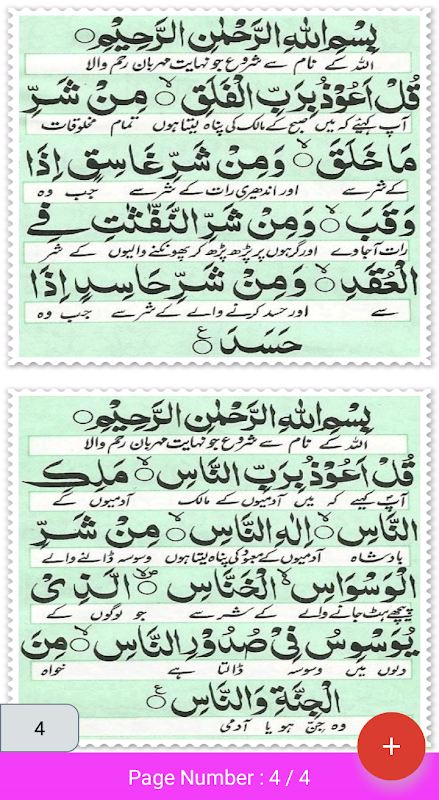 بِسْمِ اللهِ الرَّحْمٰنِ الرَّحِيْمِ○
اللہ کے نام سے شروع جو نہایت مہربان رحم والا
قُلْ اَعُوْذُ بِرَبِّ الْفَلَقِ ۙ○ مِنْ شَرِّ
آپ کہیئے کہ میں صبح کے مالک کی پناہ لیتا ہوں تمام مخلوقات
مَا خَلَقَ ۙ○ وَمِنْ شَرِّ غَاسِقٍ اِذَا
کے شر سے اور اندھیری رات کے شر سے جب وہ
وَقَبَ ۙ○ وَمِنْ شَرِّ النَّفّٰثٰتِ فِے
رات آجاوے اور گرہوں پر پڑھ پڑھ کر پھونکنے والیوں کے شر
الْعُقَدِ ۙ○ وَمِنْ شَرِّ حَاسِدٍ اِذَا
سے اور حسد کرنے والے کے شر سے جب وہ
حَسَدَ ○ع
بِسْمِ اللهِ الرَّحْمٰنِ الرَّحِيْمِ○
اللہ کے نام سے شروع جو نہایت مہربان رحم والا
قُلْ اَعُوْذُ بِرَبِّ النَّاسِ ۙ○ مَلِكِ
آپ کہیے کہ میں آدمیوں کے مالک آدمیوں کے
النَّاسِ ۙ○ اِلٰهِ النَّاسِ ۙ○ مِنْ شَرِّ
بادشاہ آدمیوں کے معبود کی پناہ لیتا ہوں وسوسہ ڈالنے والے
الْوَسْوَاسِ ۙ الْخَنَّاسِ ○ الَّذِیْ
پیچھے ہٹ جانے والے کے شر سے جو لوگوں کے
يُوَسْوِسُ فِیْ صُدُوْرِ النَّاسِ ۙ○ مِنَ
دلوں میں وسوسہ ڈالتا ہے خواہ
الْجِنَّةِ وَالنَّاسِ ○ع
وہ جن ہو یا آدمی
4
+
Page Number : 4 / 4